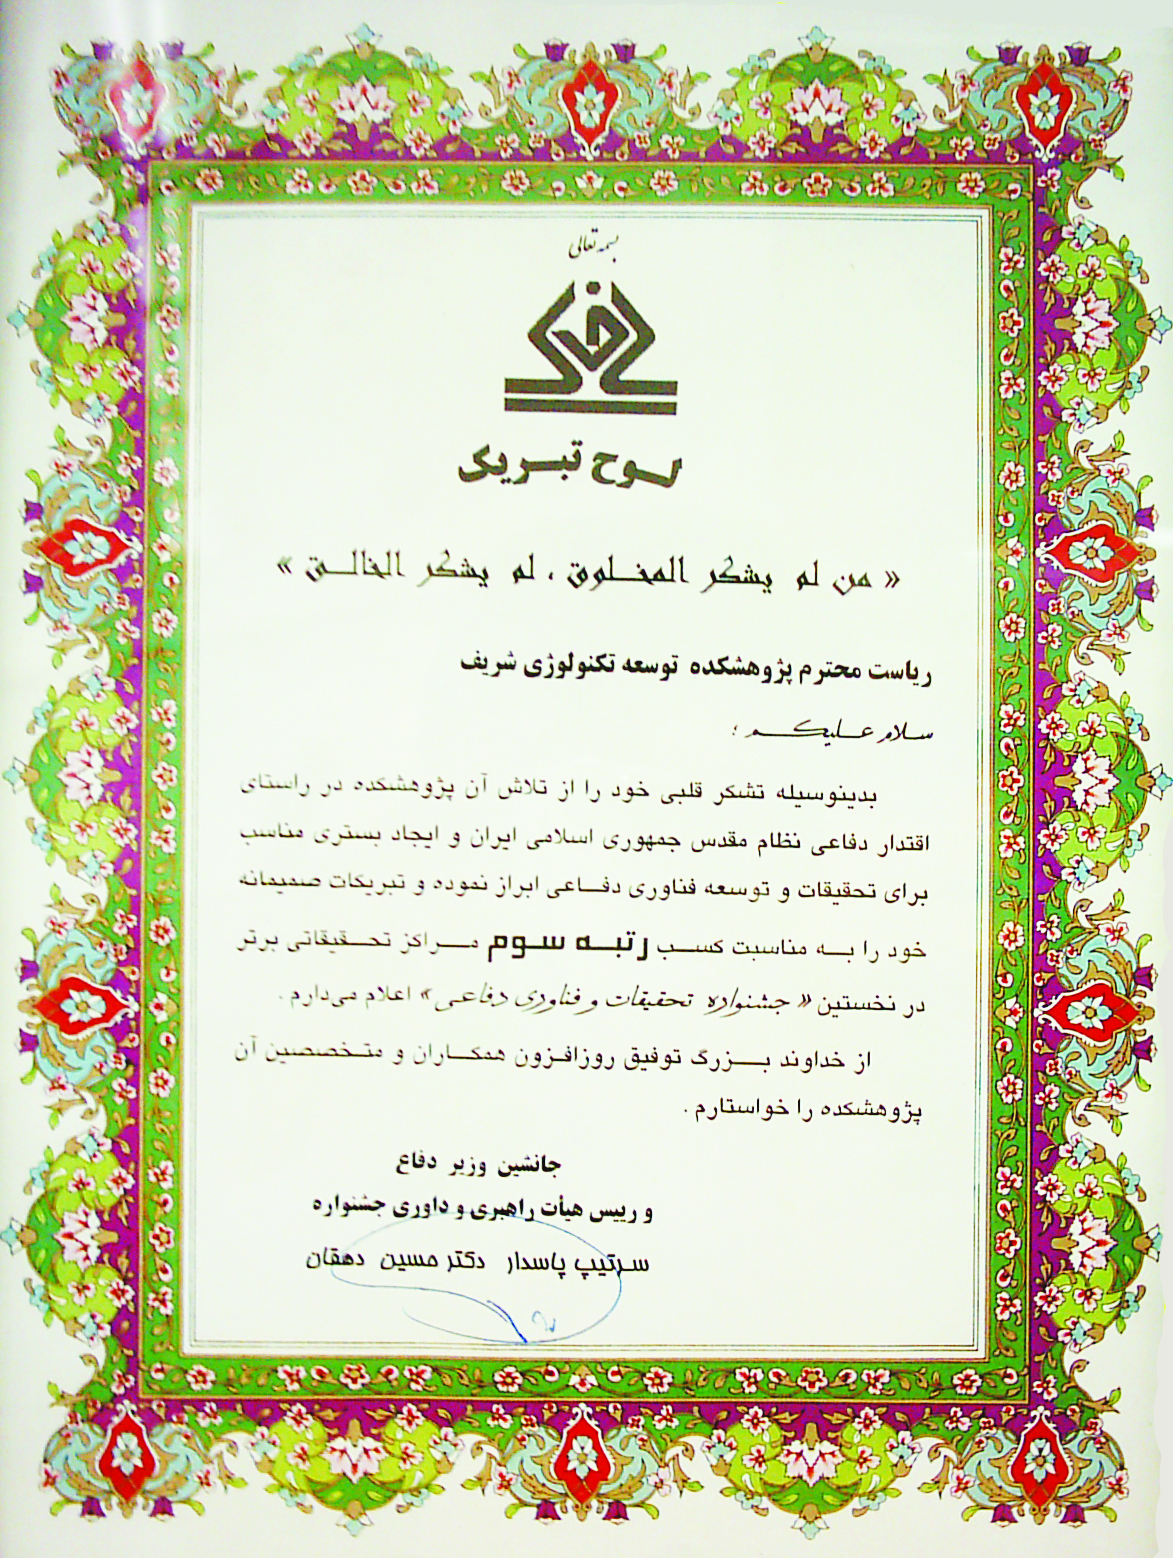 بسمه تعالی
لوح تبریک
« من لم یشکر المخلوق ، لم یشکر الخالق »
ریاست محترم پژوهشکده توسعه تکنولوژی شریف
سلام علیکم ؛
بدینوسیله تشکر قلبی خود را از تلاش آن پژوهشکده در راستای
اقتدار دفاعی نظام مقدس جمهوری اسلامی ایران و ایجاد بستری مناسب
برای تحقیقات و توسعه فناوری دفاعی ابراز نموده و تبریکات صمیمانه
خود را به مناسبت کسب رتبه سوم مراکز تحقیقاتی برتر
در نخستین « جشنواره تحقیقات و فناوری دفاعی » اعلام می‌دارم .
از خداوند بزرگ توفیق روزافزون همکاران و متخصصین آن
پژوهشکده را خواستارم .
جانشین وزیر دفاع
و رییس هیأت راهبری و داوری جشنواره
سرتیپ پاسدار دکتر حسین دهقان